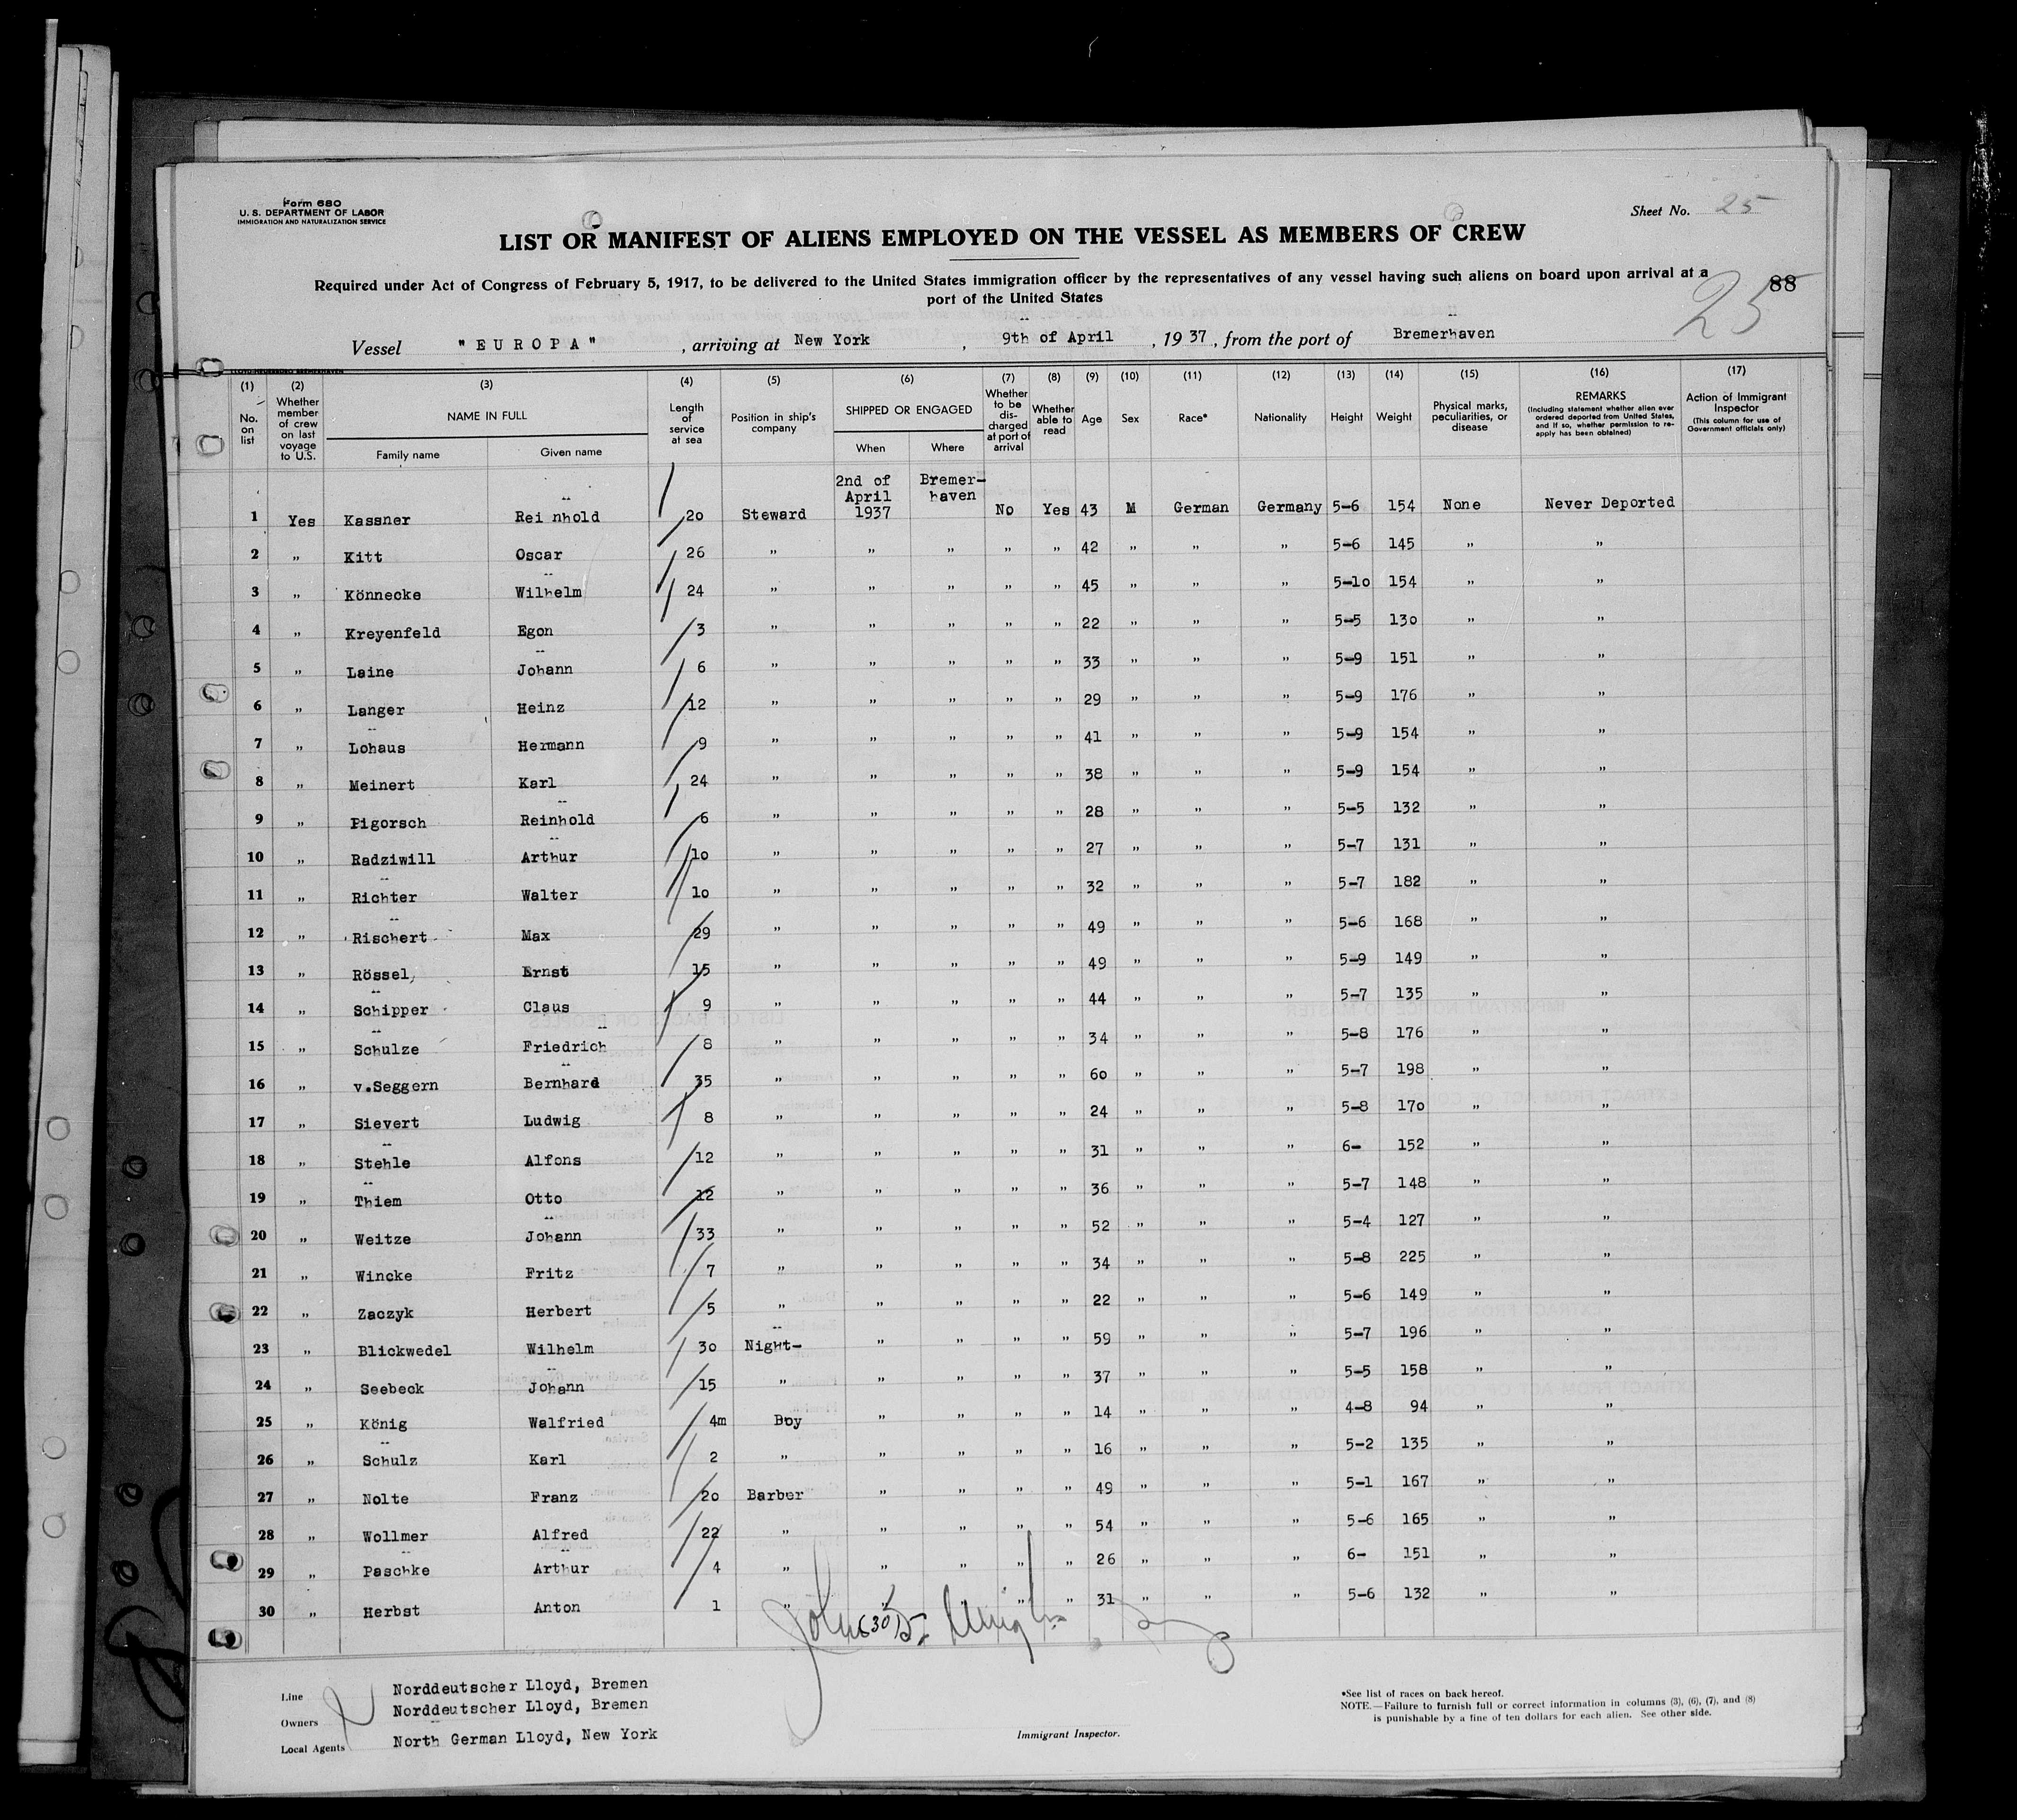 Form 680
U. S. DEPARTMENT OF LABOR
IMMIGRATION AND NATURALIZATION SERVICE
Sheet No. 25
LIST OR MANIFEST OF ALIENS EMPLOYED ON THE VESSEL AS MEMBERS OF CREW
Required under Act of Congress of February 5, 1917, to be delivered to the United States immigration officer by the representatives of any vessel having such aliens on board upon arrival at a
port of the United States
88
25
Vessel "EUROPA", arriving at New York, 9th of April, 1937, from the port of Bremerhaven
(1) No. on list
(2) Whether member of crew on last voyage to U.S.
(3) NAME IN FULL Family name Given name
(4) Length of service at sea
(5) Position in ship's company
(6) SHIPPED OR ENGAGED When Where
(7) Whether to be discharged at port of arrival
(8) Whether able to read
(9) Age
(10) Sex
(11) Race*
(12) Nationality
(13) Height
(14) Weight
(15) Physical marks, peculiarities, or disease
(16) REMARKS (Including statement whether alien ever ordered deported from United States, and if so, whether permission to reapply has been obtained)
(17) Action of Immigrant Inspector (This column for use of Government officials only)
1 Yes Kassner Reinhold 20 Steward 2nd of April 1937 Bremerhaven No Yes 43 M German Germany 5-6 154 None Never Deported
2 " Kitt Oscar 26 " " " " " 42 " " " 5-6 145 " "
3 " Könnecke Wilhelm 24 " " " " " 45 " " " 5-10 154 " "
4 " Kreyenfeld Egon 3 " " " " " 22 " " " 5-5 130 " "
5 " Laine Johann 6 " " " " " 33 " " " 5-9 151 " "
6 " Langer Heinz 12 " " " " " 29 " " " 5-9 176 " "
7 " Lohaus Hermann 9 " " " " " 41 " " " 5-9 154 " "
8 " Meinert Karl 24 " " " " " 38 " " " 5-9 154 " "
9 " Pigorsch Reinhold 6 " " " " " 28 " " " 5-5 132 " "
10 " Radziwill Arthur 10 " " " " " 27 " " " 5-7 131 " "
11 " Richter Walter 10 " " " " " 32 " " " 5-7 182 " "
12 " Rischert Max 29 " " " " " 49 " " " 5-6 168 " "
13 " Rössel, Ernst 15 " " " " " 49 " " " 5-9 149 " "
14 " Schipper Claus 9 " " " " " 44 " " " 5-7 135 " "
15 " Schulze Friedrich 8 " " " " " 34 " " " 5-8 176 " "
16 " v.Seggern Bernhard 35 " " " " " 60 " " " 5-7 198 " "
17 " Sievert Ludwig 8 " " " " " 24 " " " 5-8 170 " "
18 " Stehle Alfons 12 " " " " " 31 " " " 6- 152 " "
19 " Thiem Otto 12 " " " " " 36 " " " 5-7 148 " "
20 " Weitze Johann 33 " " " " " 52 " " " 5-4 127 " "
21 " Wincke Fritz 7 " " " " " 34 " " " 5-8 225 " "
22 " Zaczyk Herbert 5 " " " " " 22 " " " 5-6 149 " "
23 " Blickwedel Wilhelm 30 Night- " " " " 59 " " " 5-7 196 " "
24 " Seebeck Johann 15 " " " " " 37 " " " 5-5 158 " "
25 " König Walfried 4m Boy " " " " 14 " " " 4-8 94 " "
26 " Schulz Karl 2 " " " " " 16 " " " 5-2 135 " "
27 " Nolte Franz 20 Barber " " " " 49 " " " 5-1 167 " "
28 " Wollmer Alfred 22 " " " " " 54 " " " 5-6 165 " "
29 " Paschke Arthur 4 " " " " " 26 " " " 6- 151 " "
30 " Herbst Anton 1 " " " " 31 " " " 5-6 132 " "
Line Norddeutscher Lloyd, Bremen
Owners Norddeutscher Lloyd, Bremen
Local Agents North German Lloyd, New York
Immigrant Inspector.
*See list of races on back hereof.
NOTE.—Failure to furnish full or correct information in columns (3), (6), (7), and (8)
is punishable by a fine of ten dollars for each alien. See other side.